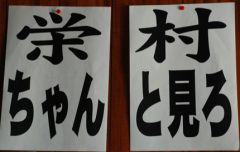 栄村
ちゃんと見ろ